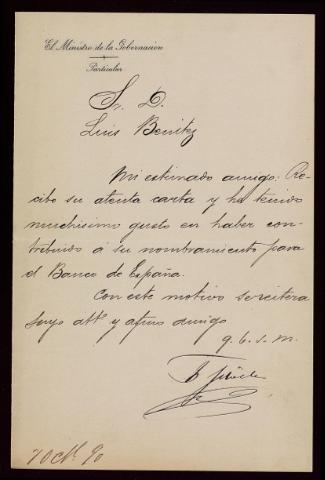 El Ministro de la Gobernación
Particular
Sr. D.
Luis Benítez
Mi estimado amigo: Re-
cibo su atenta carta y he tenido
muchisimo gusto en haber con-
tribuido á su nombramiento para
el Banco de España.
Con este motivo se reitera
suyo attº y afmo amigo
q. b. s. m.